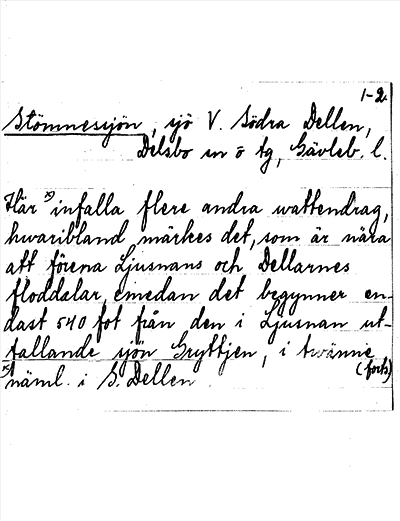 1-2.
Stömnessjön, sjö V. Södra Dellen,
Delsbo sn ö tg, Gävleb. l.
Här x) infalla flere andra wattendrag,
hwaribland märkes det, som är nära
att förena Ljusnans och Dellarnes
floddalar, emedan det begynner en-
dast 540 fot från den i Ljusnan ut-
fallande sjön Gryttjen, i twänne
x) näml. i S. Dellen (forts)